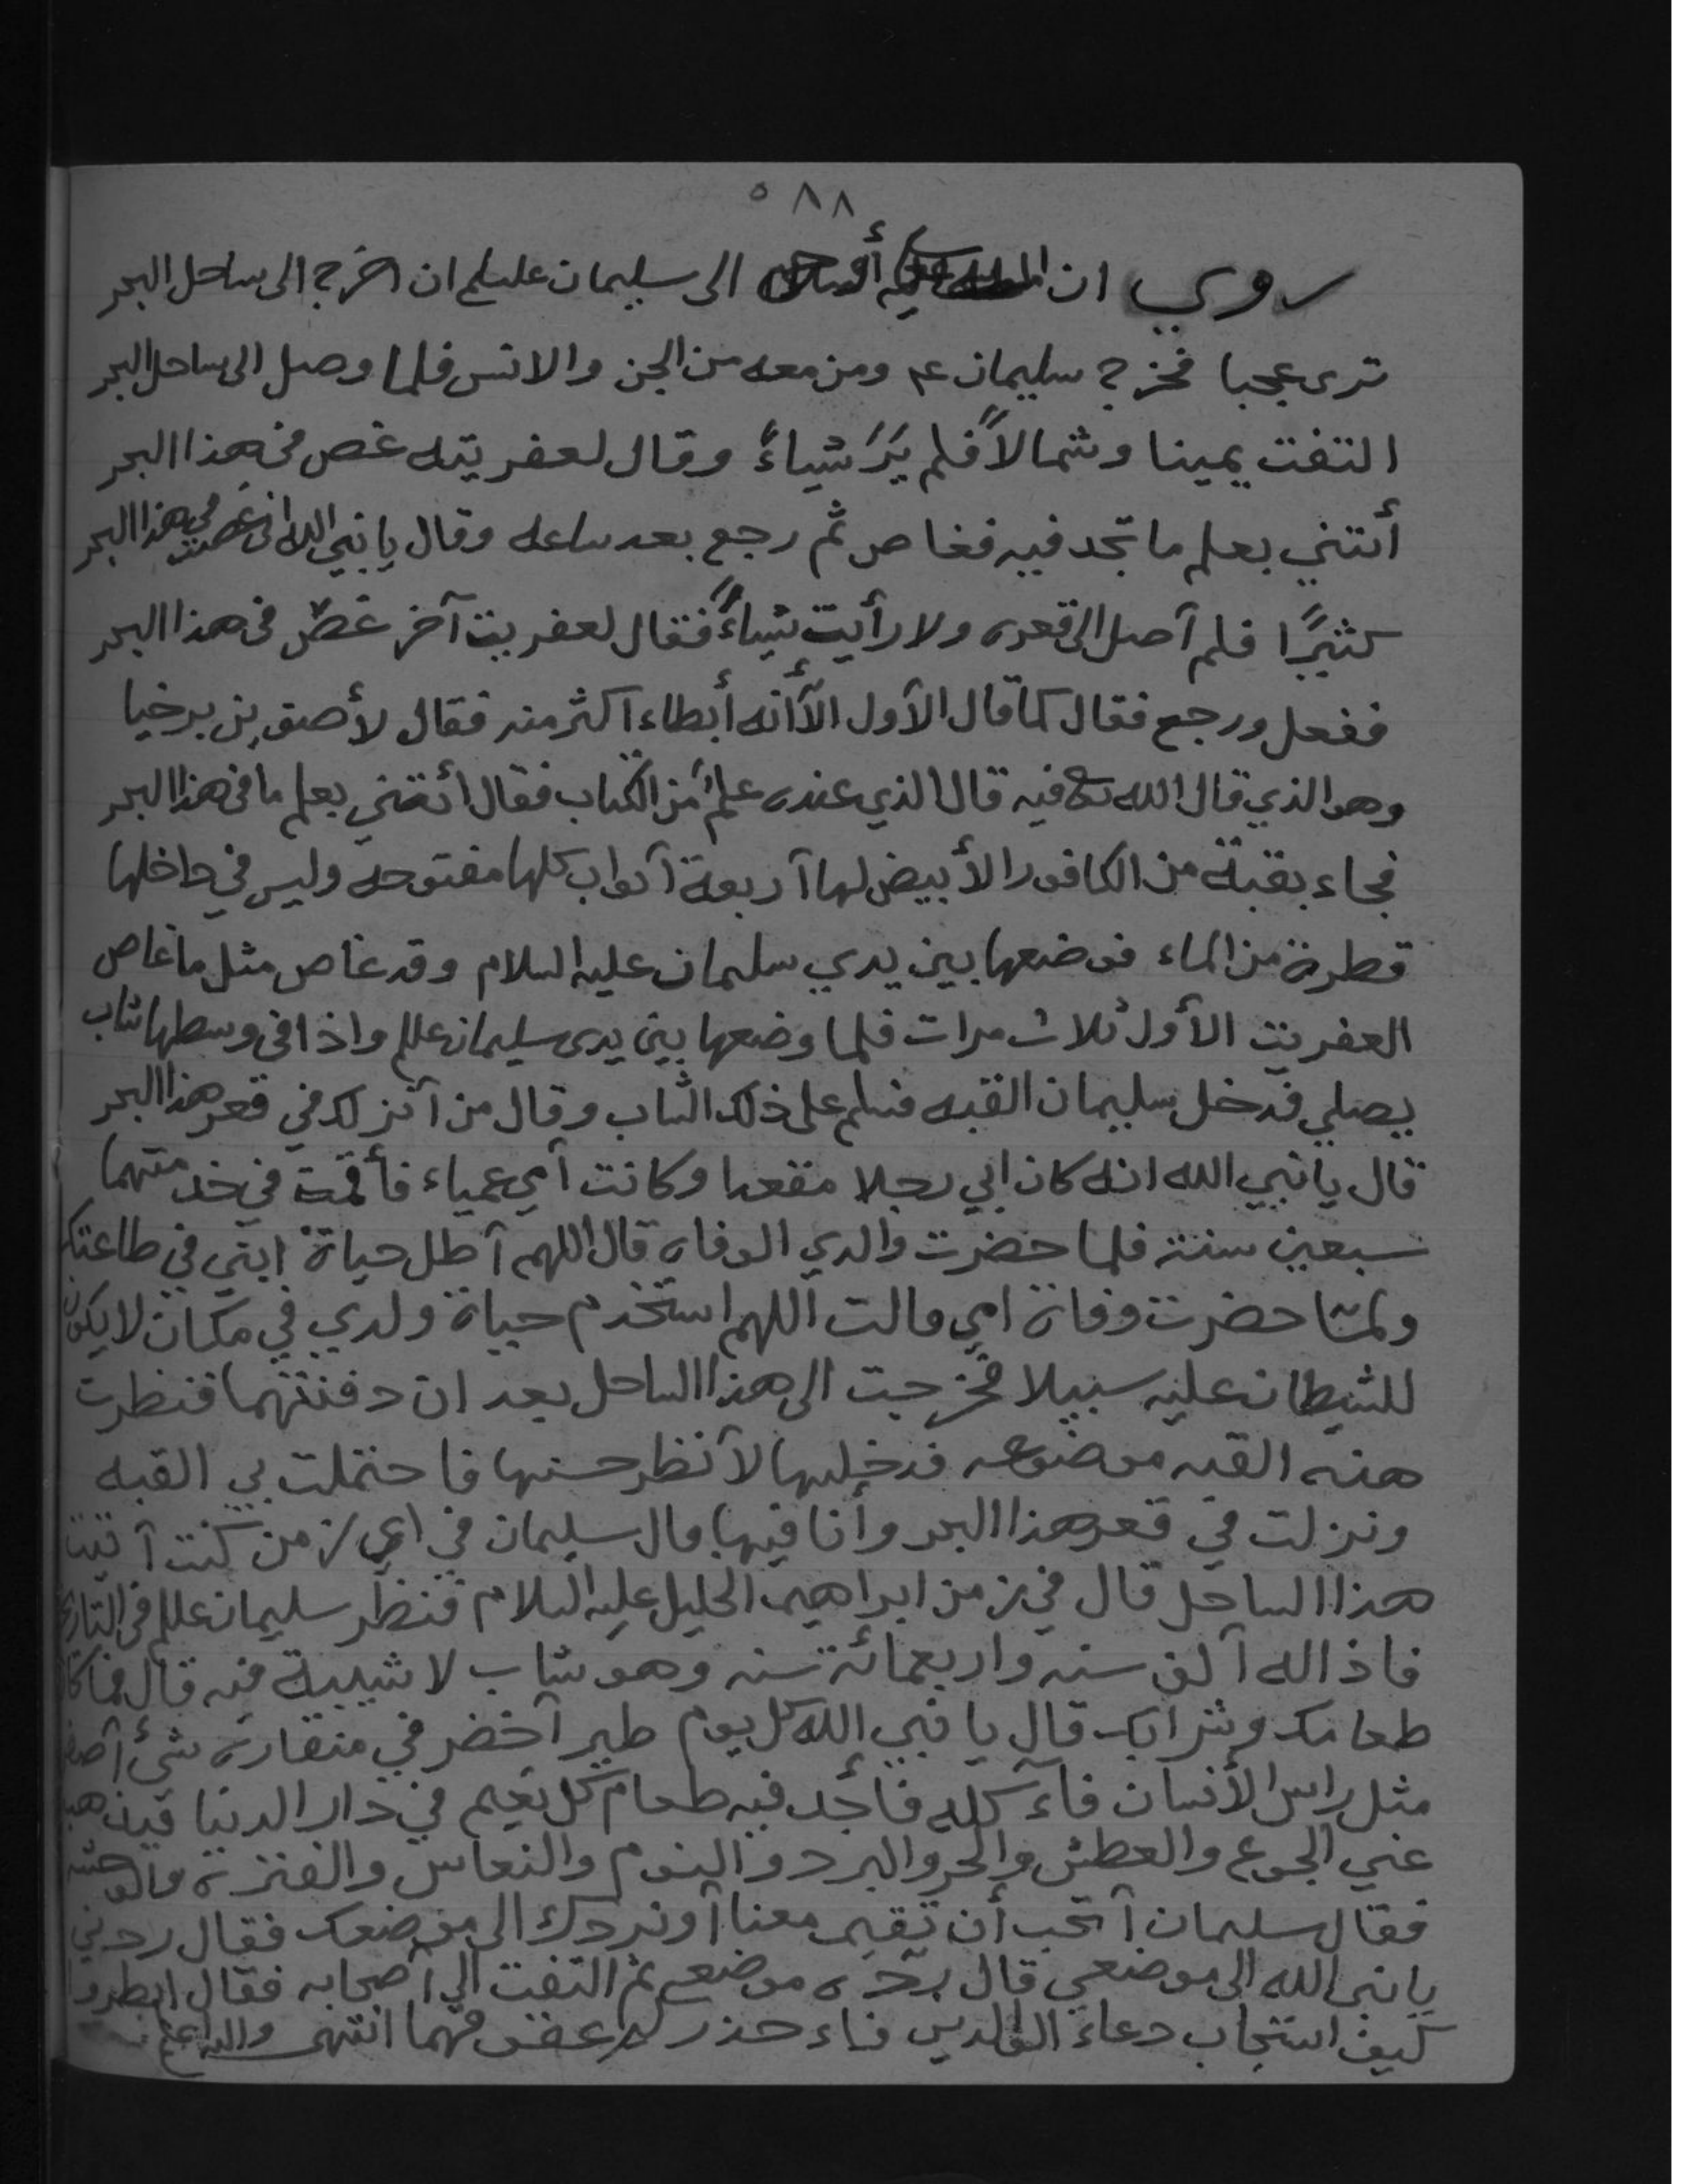 ٥٨٨
روي ان أوحى الى سليمان علسلم ان اخرج الى ساحل البحر
ترى عجبا فخرج سليمان عم ومن معه من الجن والانس فلما وصل الى ساحل البحر
التفت يمينا وشمالاً فلم يَرَ شياءً وقال لعفريته غص في هذا البحر
أتتني بعلم ما تجد فيه فغاص ثم رجع بعد ساعه وقال يا نبي الله اني غصت في هذا البحر
كثيرًا فلم آصل الى قعره ولا رأيت شياءً فقال لعفريت آخر غص في هذا البحر
ففعل ورجع فقال كما قال الآول الآ أنه أبطاء آكثر منه فقال لأصف بن برخيا
وهو الذي قال الله تع فيه قال الذي عنده علم من الكتاب فقال أتتني بعلم ما في هذا البحر
فجاء بقبة من الكافور الأبيض لها آربعة آبواب كلها مفتوحه وليس في داخلها
قطرة من الماء فوضعها بين يدي سليمان عليه السلام وقد غاص مثل ما غاص
العفريت الأول ثلاث مرات فلما وضعها بين يدى سليمان علم واذا في وسطها شاب
يصلي فدخل سليمان القبه فسلم على ذلك الشاب وقال من آنزلك في قعر هذا البحر
قال يا نبي الله انه كان ابي رجلا مقعدا وكانت آمي عمياء فأقمت في خدمتهما
سبعين سنة فلما حضرت والدي الوفاه قال اللهم آطل حياة ابني في طاعتك
ولما حضرت وفاة امي قالت اللهم استخدم حياة ولدي في مكان لا يكون
للشيطان عليه سبيلا فخرجت الى هذا الساحل بعد ان دفنتهما فنظرت
هذه القبه موضوعه فدخلتها لآنظر حسنها فاحتملت بي القبه
ونزلت في قعر هذا البحر وأنا فيها قال سليمان في اي زمن كنت آتيت
هذا الساحل قال في زمن ابراهيم الخليل عليه السلام فنظر سليمان علم في التاريخ
فاذا له آلف سنه واربعمائة سنه وهو شاب لا شيبة فيه قال فما كا
طعامك وشرابك قال يا نبي الله كل يوم طير آخضر في منقاره شئ آصفر
مثل راس الأنسان فآكله فأجد فيه طعام كل نعيم في دار الدنيا فيذهب
عني الجوع والعطش والحر والبرد والنوم والنعاس والفترة والوحشه
فقال سليمان آتحب أن تقيم معنا آو نردك الى موضعك فقال ردني
يا نبي الله الى موضعي قال ردّه موضعه ثم التفت الى آصحابه فقال انظروا
كيف استجاب دعاء الوالدين انتهى والله اعلم